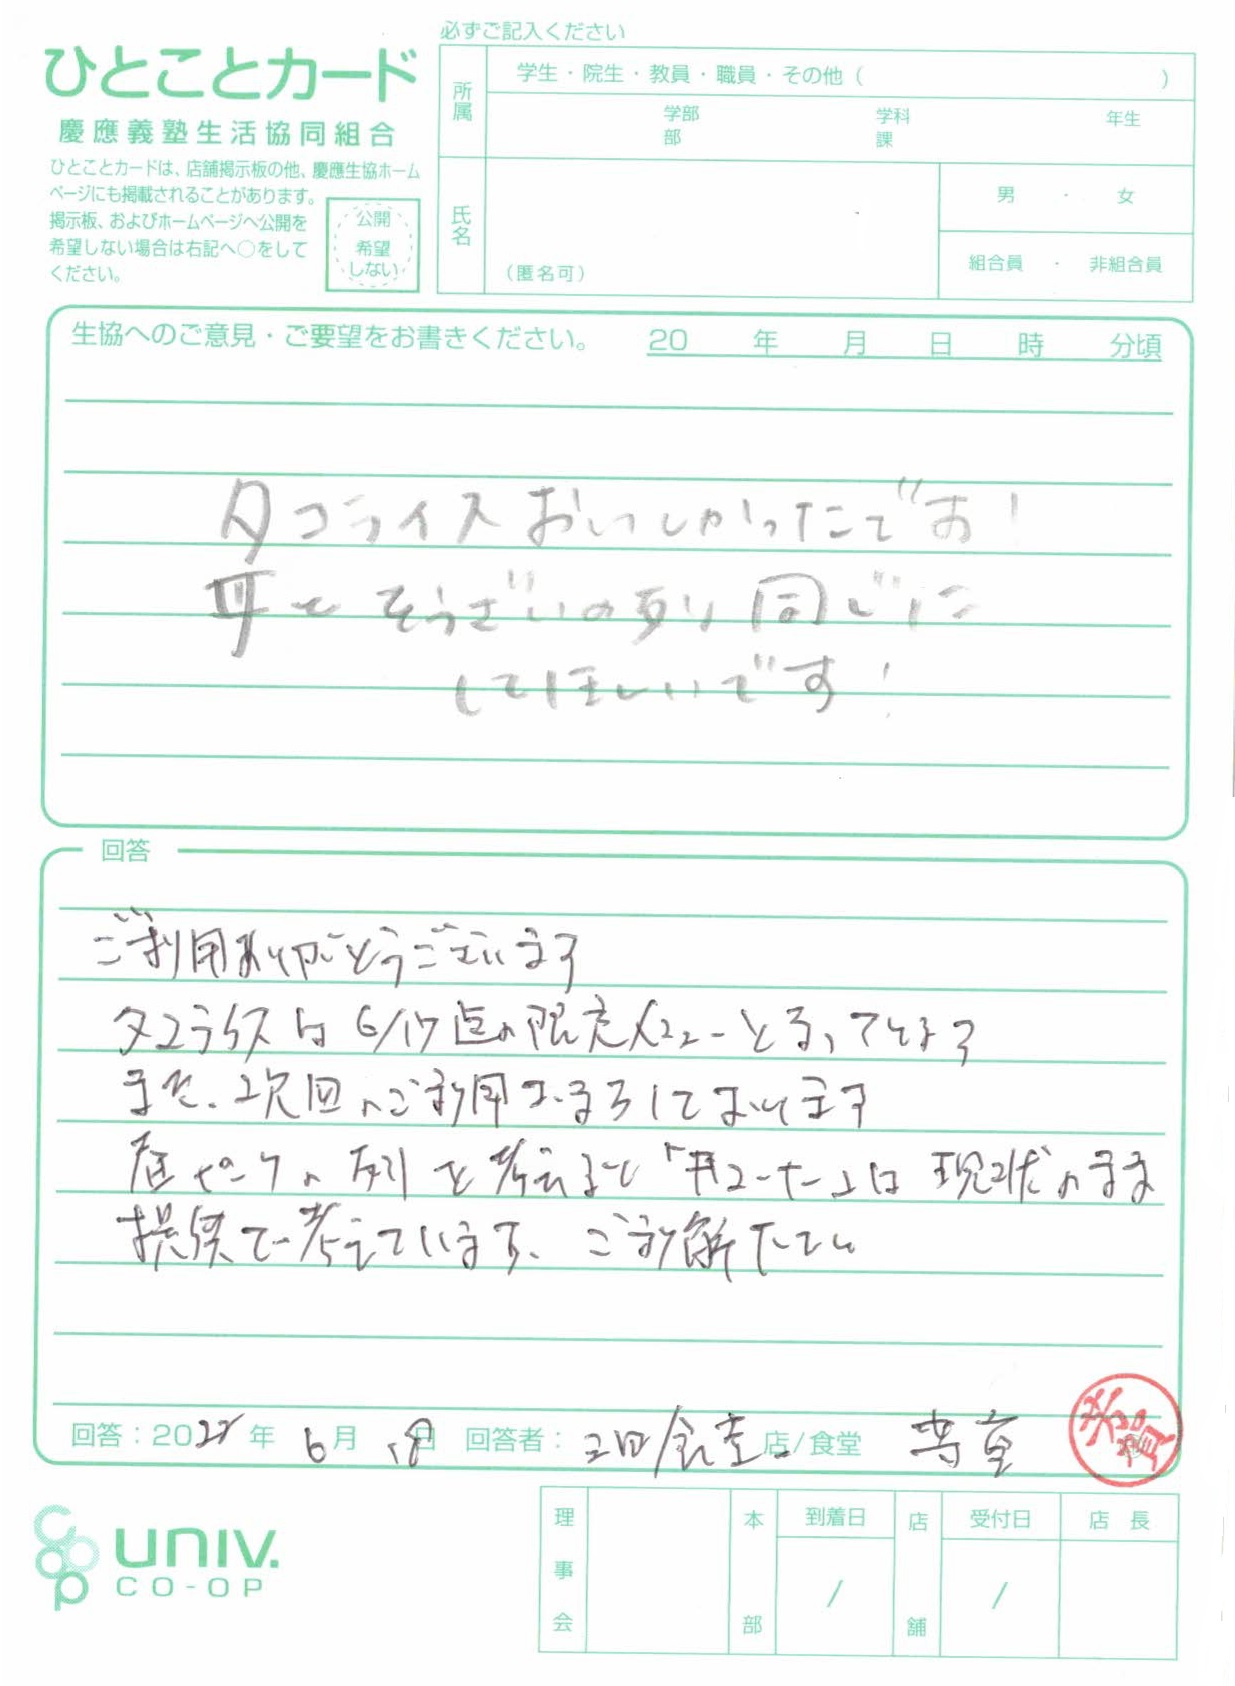 必ずご記入ください
ひとことカード
慶應義塾生活協同組合
ひとことカードは、店舗掲示板の他、慶應生協ホーム
ページにも掲載されることがあります。
掲示板、およびホームページへ公開を
希望しない場合は右記へ○をして
ください。
公開
希望
しない
所属
学生・院生・教員・職員・その他（ ）
学部 学科 年生
部 課
氏名
（匿名可）
男 ・ 女
組合員 ・ 非組合員
生協へのご意見・ご要望をお書きください。 20 年 月 日 時 分頃
タコライスおいしかったです!
丼とそうざいの列同じに
してほしいです!
回答
ご利用ありがとうございます
タコライスは6/17迄の限定メニューとなっています
また、次回のご利用お待ちしております
昼ピークの列を考えると「丼コーナー」は現状のまま
提供で考えています、ご理解下さい
回答：2022年 6月 18日 回答者： 店/食堂
理事会
本部
到着日
/
店舗
受付日
/
店長
univ.
CO-OP